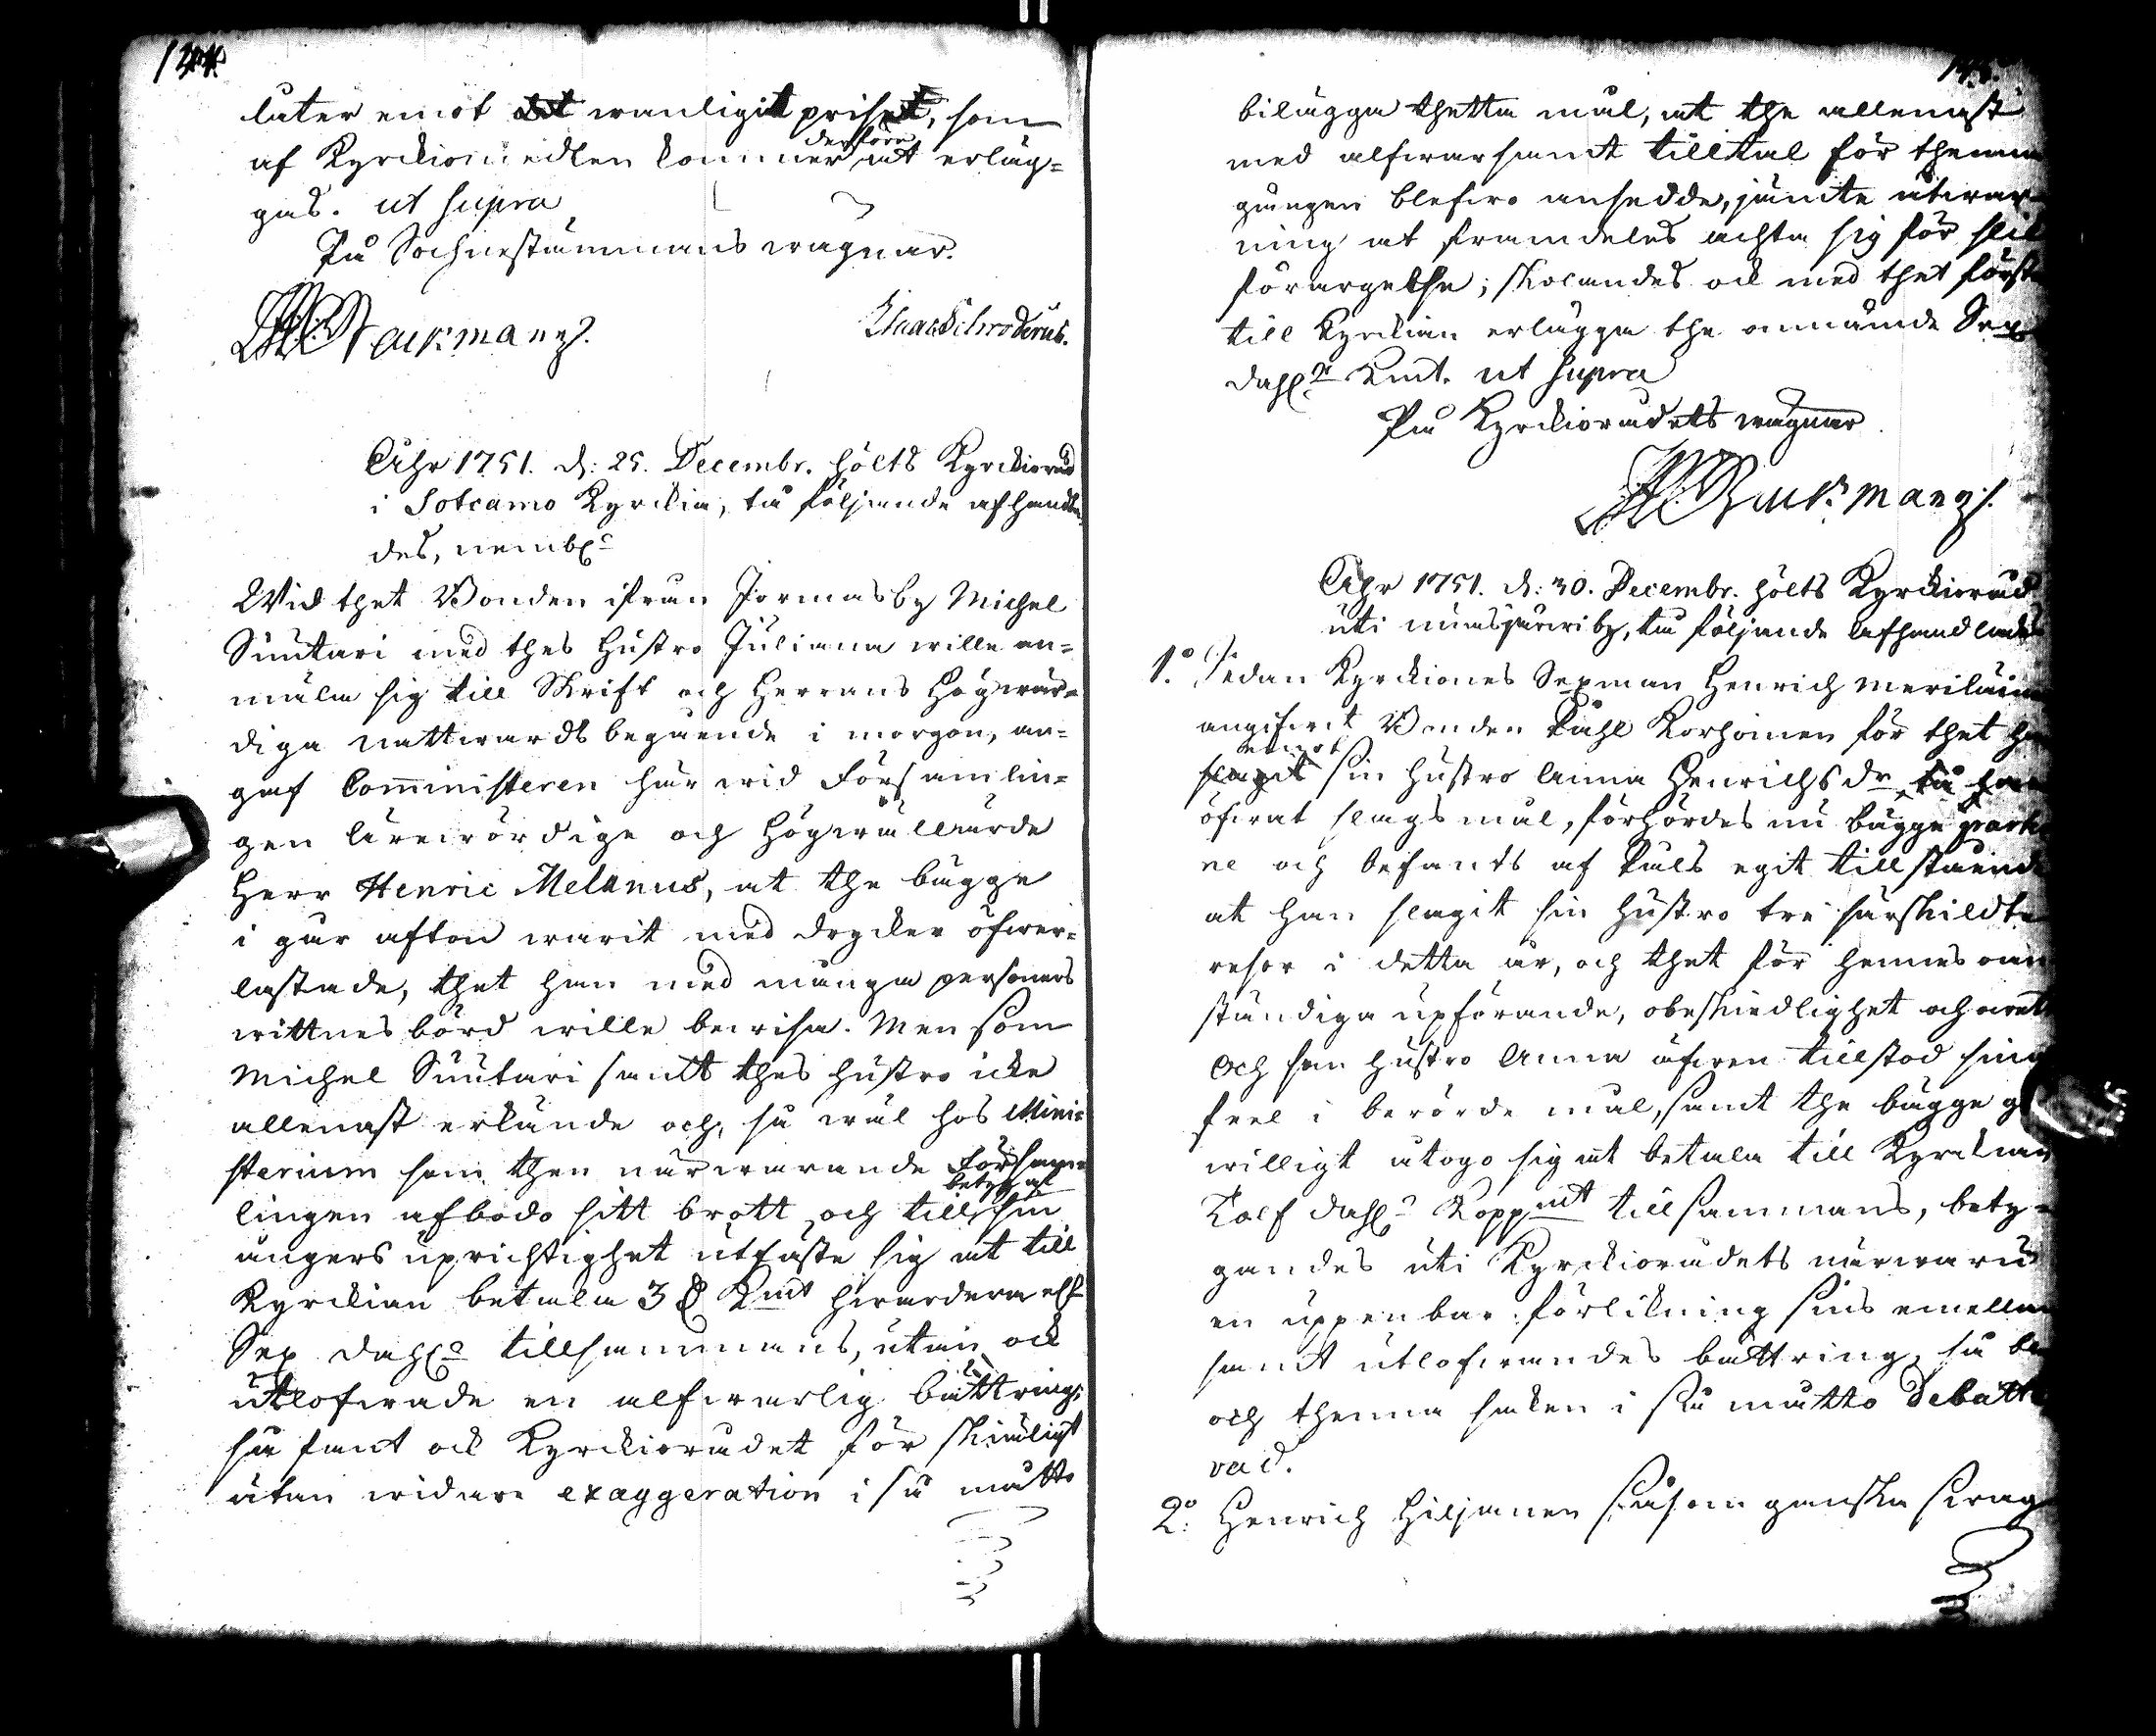 låter emot det wanligit priset, som
af Kyrckiomedlen kommer derföre at erläg=
gas. ut supra
På Sochnestämmans wägnar.
Isaac Schroderus.
Åhr 1751. d: 25. Decembr. hölts Kyrckioråd
i Sotcamo Kyrckia, tå följande afhandla-
des, nembl:
Wid thet Bonden ifrån Jormasby Michel
Suutari med thes hustro Juliana wille an=
mäla sig till Skrift och Herrans Högwär=
diga nattwards begående i morgon, an=
gaf Comministeren här wid Församlin=
gen Ärewördige och Högwällärde
Herr Henric Melanus, at the bägge
i går afton warit med drycker öfwer=
lastade, thet han med många personers
wittnesbörd wille bewisa. Men som
Michel Suutari samt thes hustro icke
allenast erkände och, så wäl hos Mini=
sterium som then närwarande Försam=
lingen afbodo sitt brott, och till betygs af sin
ångers uprichtighet utfäste sig at till
Kyrckian betala 3 D Kmt hwardera eller
Sex dahlr tillsammans, utan ock
utlofwade en alfwarlig bättring;
så fant ock Kyrckiorådet för skiäligt
utan widare exaggeration i så måtto
bilägga thetta mål, at the allenast
med alfwarsamt tilltal för thenna
gången blefwo ansedde, jämte åtwar-
ning at framdeles achta sig för slik
förargelse; skolandes ock med thet första
till Kyrckian erlägga the omnämde Sex
dahlr Kmt. ut supra
På Kyrckiorådets wägnar.
Åhr 1751. d: 30. Decembr. hölts Kyrckioråd
uti nuasjärwi by, tå följande afhandlades
1.o Sedan Kyrckiones Sexman Henrich Meriläinen
angifwit Bonden Påhl Korhoinen för thet han
emot sin hustro Anna Henrichsdr
öfwat slagsmål, förhördes nu bägge parter
ne och befants af Påls egit tillstående
at han slagit sin hustro tre särskildte
resor i detta år, och thet för hennes oan
ständiga upförande, obeskiedlighet och
Och som hustro Anna äfwen tillstod sina
feel i berörde mål, samt the bägge god
willigt åtogo sig at betala till Kyrckian
Tolf dahlr Koppmt tillsammans, bety=
gandes uti Kyrckiorådets närwaru
en uppenbar förlikning sins emellan
samt utlofwandes bättring, så blef
och thenna saken i så måtto debatte
rad.
2:o Henrich Hiljanen såsom ganska swag